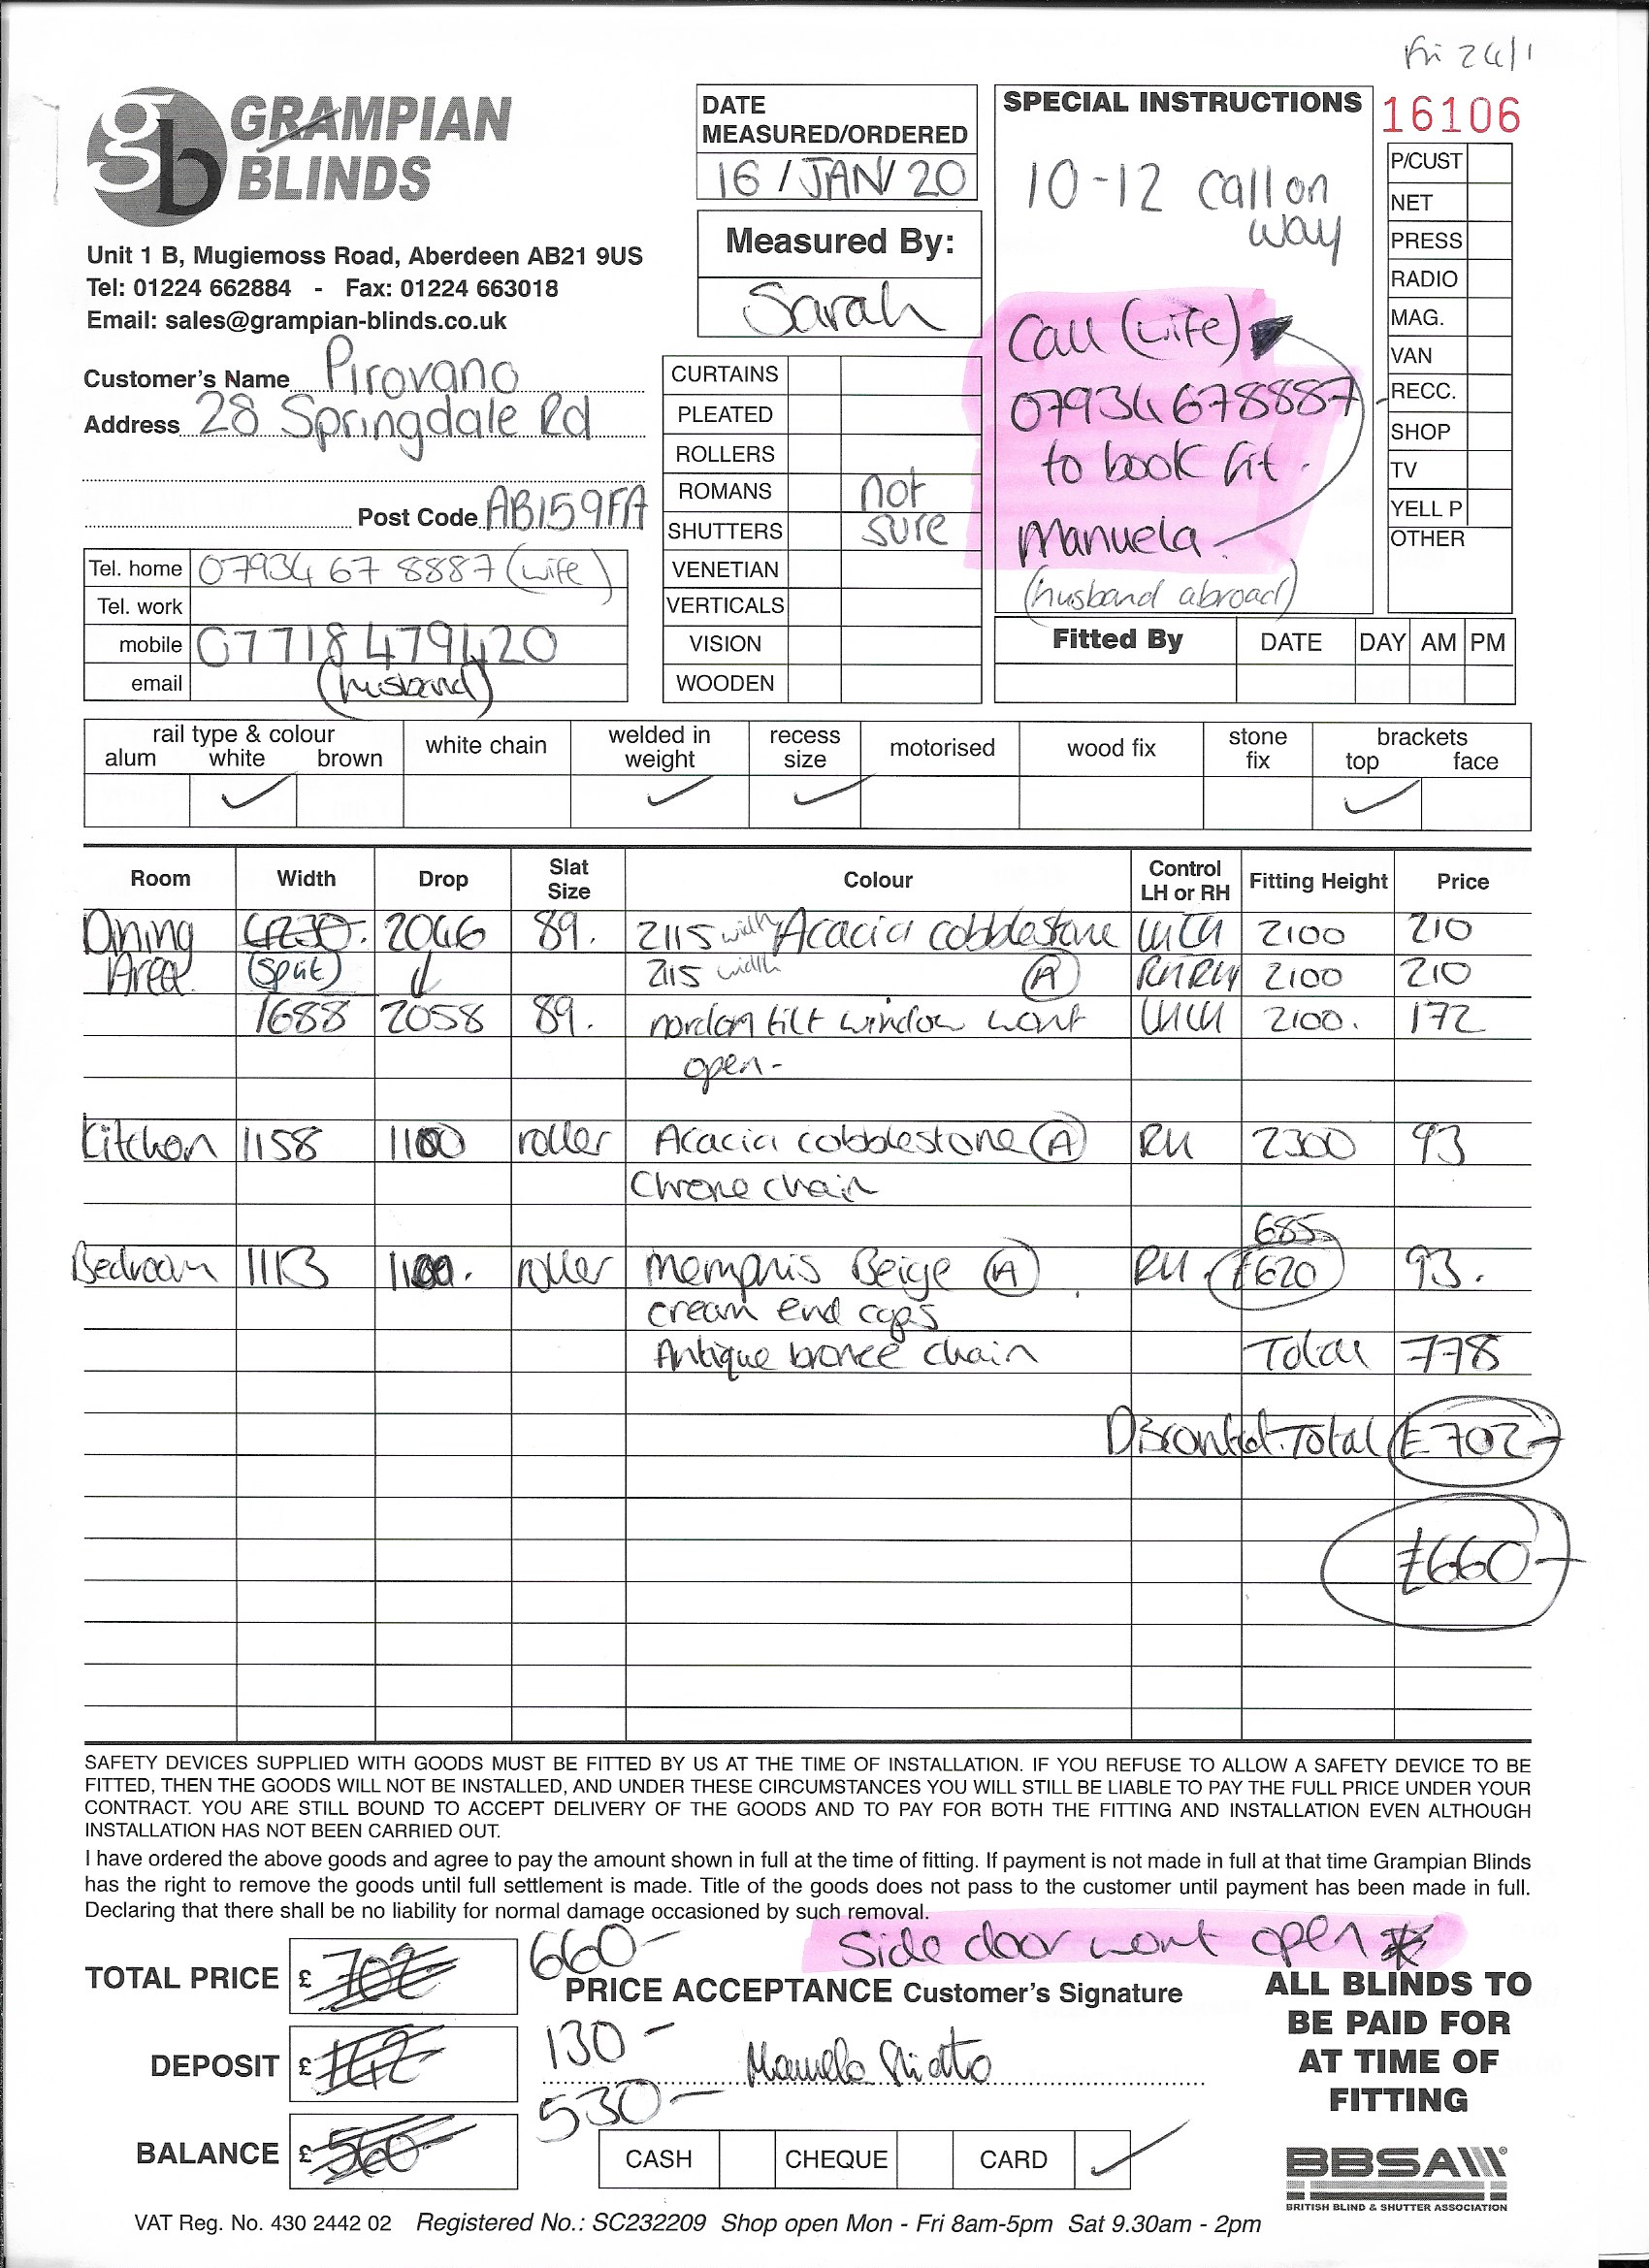 Fri 24/1
gb GRAMPIAN BLINDS
Unit 1 B, Mugiemoss Road, Aberdeen AB21 9US
Tel: 01224 662884 - Fax: 01224 663018
Email: sales@grampian-blinds.co.uk
Customer's Name Pirovano
Address 28 Springdale Rd
Post Code AB159FA
Tel. home 07934 67 8887 (wife)
Tel. work
mobile 07718479420
email (husband)
DATE
MEASURED/ORDERED
16/JAN/20
Measured By:
Sarah
CURTAINS
PLEATED
ROLLERS
ROMANS not
SHUTTERS sure
VENETIAN
VERTICALS
VISION
WOODEN
SPECIAL INSTRUCTIONS
10-12 call on
way
Call (wife)
07934678887
to book fit.
Manuela
(husband abroad)
16106
P/CUST
NET
PRESS
RADIO
MAG.
VAN
RECC.
SHOP
TV
YELL P
OTHER
Fitted By DATE DAY AM PM
rail type & colour white chain welded in weight recess size motorised wood fix stone fix brackets
alum white brown top face
Room Width Drop Slat Size Colour Control LH or RH Fitting Height Price
Dining 4230. 2046 89. 2115 width Acacia cobblestone 2100 210
Area (split) 2115 width (A) RHRH 2100 210
1688 2058 89. tilt window wont 2100. 172
open-
Kitchen 1158 1100 roller Acacia cobblestone (A) RH 2300 93
Chrome chain
685
Bedroom 1113 1100. roller Memphis Beige (A) RH. 1620 93.
cream end caps
Antique bronze chain Total 778
Discounted. Total £702-
£660-
SAFETY DEVICES SUPPLIED WITH GOODS MUST BE FITTED BY US AT THE TIME OF INSTALLATION. IF YOU REFUSE TO ALLOW A SAFETY DEVICE TO BE
FITTED, THEN THE GOODS WILL NOT BE INSTALLED, AND UNDER THESE CIRCUMSTANCES YOU WILL STILL BE LIABLE TO PAY THE FULL PRICE UNDER YOUR
CONTRACT. YOU ARE STILL BOUND TO ACCEPT DELIVERY OF THE GOODS AND TO PAY FOR BOTH THE FITTING AND INSTALLATION EVEN ALTHOUGH
INSTALLATION HAS NOT BEEN CARRIED OUT.
I have ordered the above goods and agree to pay the amount shown in full at the time of fitting. If payment is not made in full at that time Grampian Blinds
has the right to remove the goods until full settlement is made. Title of the goods does not pass to the customer until payment has been made in full.
Declaring that there shall be no liability for normal damage occasioned by such removal.
Side door wont open *
TOTAL PRICE £ 702 660-
PRICE ACCEPTANCE Customer's Signature
DEPOSIT £ 142 130-
Manuela
BALANCE £ 560- 530-
CASH CHEQUE CARD
ALL BLINDS TO
BE PAID FOR
AT TIME OF
FITTING
BBSA
BRITISH BLIND & SHUTTER ASSOCIATION
VAT Reg. No. 430 2442 02 Registered No.: SC232209 Shop open Mon - Fri 8am-5pm Sat 9.30am - 2pm